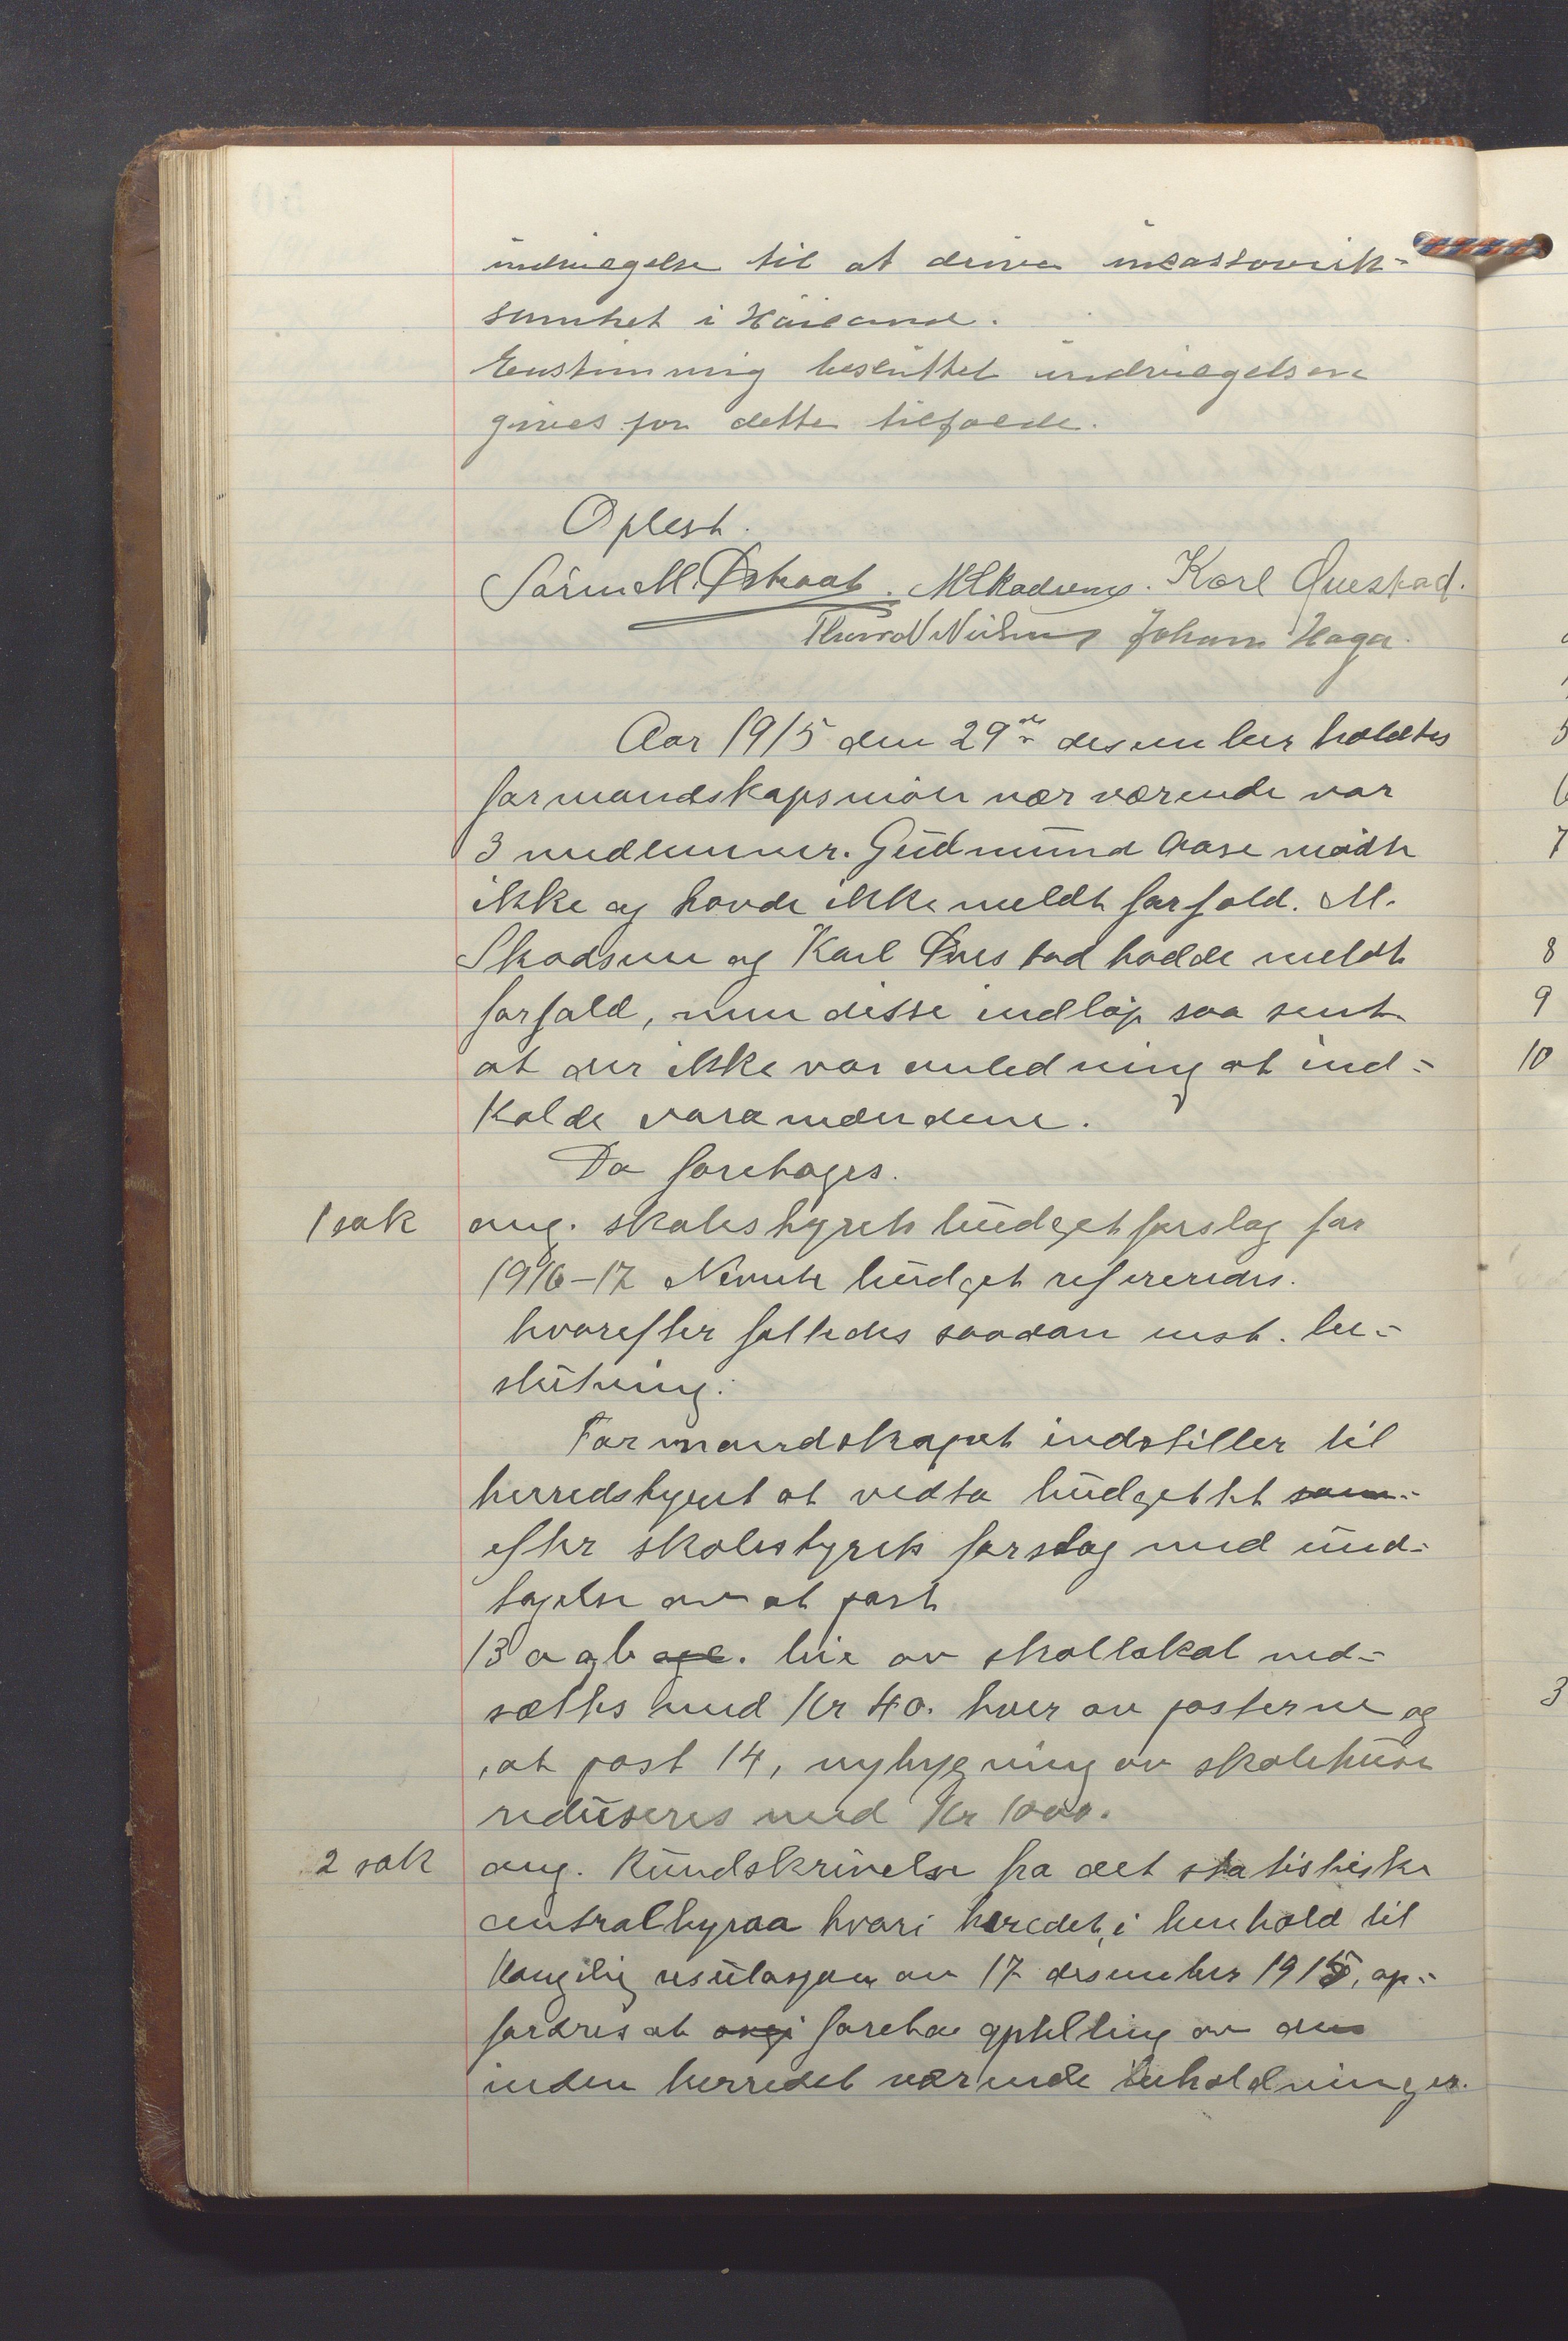 indvilgelse til at drive inkassovirk-
somhet i Høiland.
Enstemmig besluttet indvilgelsen
gives for dette tilfælde.
Oplest.
Sørin M. Østraat. M Skadsem. Karl Øvestad.
Thorvald Nielsen Johan Haga.
Aar 1915 den 29de desember holdtes
formandskapsmøte nærværende var
3 medlemmer. Gudmund Aase mødte
ikke og havde ikke meldt forfald. M.
Skadsem og Karl Øvestad hadde meldt
forfald, men disse indløp saa sent
at der ikke var anledning at ind-
kalde varamændene.
Da foretoges.
1 sak ang. skolestyrets budgetforslag for
1916-17 Nevnte budget refereredes.
hvorefter fattedes saadan enst. be-
slutning:
Formandskapet indstiller til
herredstyret at vedta budgettet som
efter skolestyrets forslag med und-
tagelse av at post
13 a og b leie av skollokal ned-
sættes med Kr 40. hver av posterne og
at post 14, nybygning av skolehuse
reduseres med Kr 1000.
2 sak ang. Rundskrivelse fra det statistiske
centralbyraa hvori heredet, i henhold til
Kongelig resulasjon av 17 desember 1915, op-
fordres at foreta optelling av de
inden herredet værende beholdninger.
5
6
7
8
9
10
3